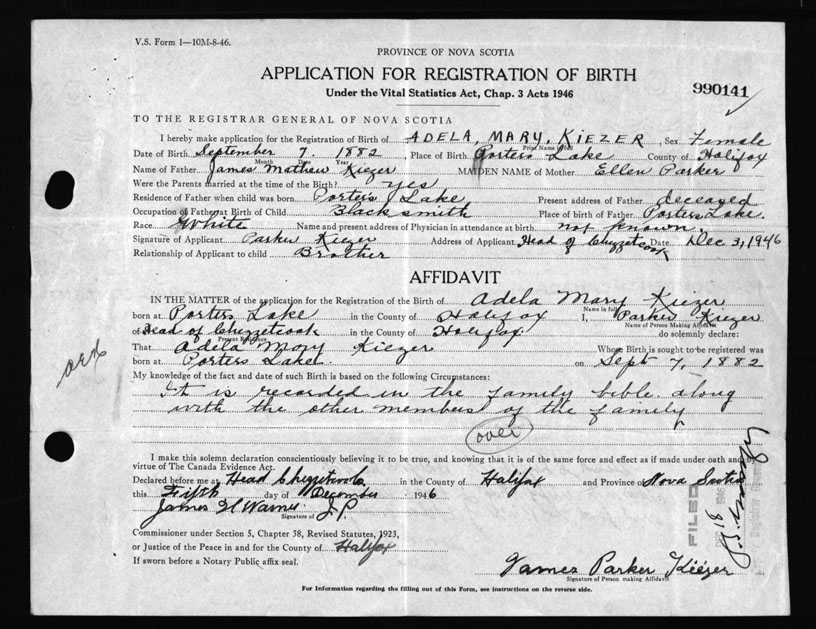 V.S. Form 1—10M-8-46.
PROVINCE OF NOVA SCOTIA
APPLICATION FOR REGISTRATION OF BIRTH
Under the Vital Statistics Act, Chap. 3 Acts 1946
990141
TO THE REGISTRAR GENERAL OF NOVA SCOTIA
I hereby make application for the Registration of Birth of ADELA, MARY, KIEZER, Sex Female
Print Name in full
Date of Birth September 7. 1882, Place of Birth Porters Lake County of Halifax
Month Date Year
Name of Father James Mathew Kiezer MAIDEN NAME of Mother Ellen Parker
Were the Parents married at the time of the Birth? yes
Residence of Father when child was born Porters Lake Present address of Father deceased
Occupation of Father at Birth of Child Blacksmith Place of birth of Father Porters Lake.
Race White Name and present address of Physician in attendance at birth not known.
Signature of Applicant Parker Kiezer Address of Applicant Head of Chezzetcook Date Dec 3, 1946
Relationship of Applicant to child Brother
AFFIDAVIT
IN THE MATTER of the application for the Registration of Birth of Adela Mary Kiezer
Name in full
born at Porters Lake in the County of Halifax I, Parker Kiezer
Name of Person Making Affidavit
of Head of Chezzetcook in the County of Halifax do solemnly declare:
Present Residence
That Adela Mary Kiezer Whose Birth is sought to be registered was
born at Porters Lake on Sept 7, 1882
My knowledge of the fact and date of such Birth is based on the following Circumstances:
It is recorded in the family bible along
with the other members of the family
over
I make this solemn declaration conscientiously believing it to be true, and knowing that it is of the same force and effect as if made under oath and by
virtue of The Canada Evidence Act.
Declared before me at Head Chezzetcook in the County of Halifax and Province of Nova Scotia
this Fifth day of December 1946
James W Warner J.P.
Signature of
Commissioner under Section 5, Chapter 38, Revised Statutes, 1923,
or Justice of the Peace in and for the County of Halifax
If sworn before a Notary Public affix seal.
FILED
18 1946
James Parker Kiezer
Signature of Person making Affidavit
For Information regarding the filling out of this Form, see instructions on the reverse side.